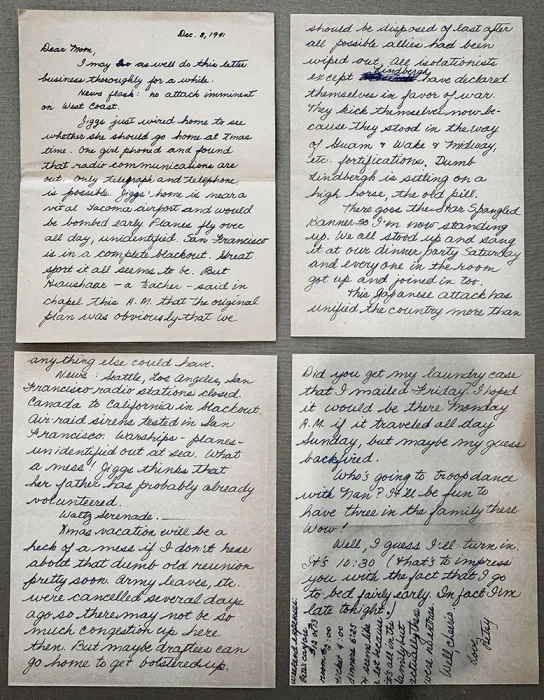 Dec. 8, 1941
Dear Mom,
I may as well do this letter
business thoroughly for a while.
News flash: no attack imminent
on West Coast.
Jiggs just wired home to see
whether she should go home at Xmas
time. One girl phoned and found
that radio communications are
out. Only telegraph and telephone
is possible. Jiggs' home is near a
vital Tacoma airport and would
be bombed early. Planes fly over
all day, unidentified. San Francisco
is in a complete blackout. Great
sport it all seems to be. But
Haushaar - a teacher - said in
chapel this A.M. that the original
plan was obviously that we
should be disposed of last after
all possible allies had been
wiped out. All isolationists
except Lindbergh have declared
themselves in favor of war.
They kick themselves now be-
cause they stood in the way
of Guam & Wake & Midway,
etc. fortifications. Dumb
Lindbergh is sitting on a
high horse, the old pill.
There goes the Star Spangled
Banner so I'm now standing
up. We all stood up and sang
it at our dinner party Saturday
and everyone in the room
got up and joined in too.
This Japanese attack has
unified the country more than
anything else could have.
News: Seattle, Los Angeles, San
Francisco radio stations closed.
Canada to California in blackout.
Air raid sirens tested in San
Francisco. Warships - planes -
unidentified out at sea. What
a mess! Jiggs thinks that
her father has probably already
volunteered.
Waltz Serenade. —
Xmas vacation will be a
heck of a mess if I don't hear
about that dumb old reunion
pretty soon. Army leaves, etc.
were cancelled several days
ago so there may not be so
much congestion up here
then. But maybe draftees can
go home to get bolstered up.
Did you get my laundry case
that I mailed Friday? I hoped
it would be there Monday
A.M. if it traveled all day
Sunday, but maybe my guess
backfired.
Who's going to troop dance
with Nan? It'll be fun to
have three in the family there.
Wow!
Well, I guess I'll turn in.
It's 10:30 (that's to impress
you with the fact that I go
to bed fairly early. In fact I'm
late tonight.)
Weekend expenses:
room 3.00
Dinners 6.25
It seems like
a lot because
it's all in the
family but
actually these
were
Love,
Betsy